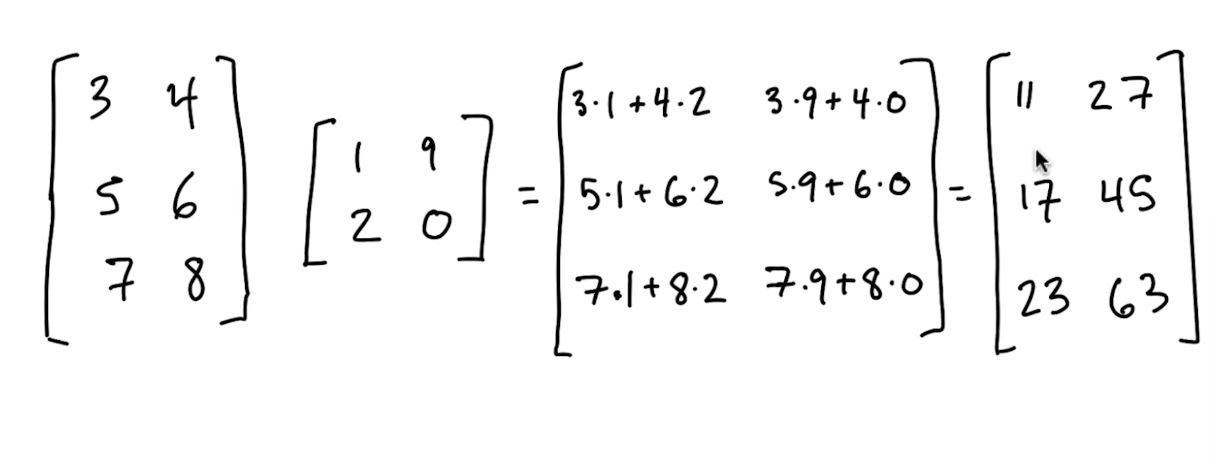 [3 4; 5 6; 7 8] [1 9; 2 0] = [3·1+4·2 3·9+4·0; 5·1+6·2 5·9+6·0; 7·1+8·2 7·9+8·0] = [11 27; 17 45; 23 63]